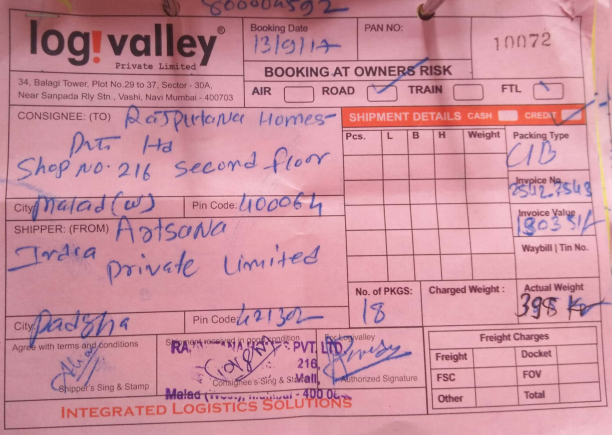 log!valley®
Private Limited
34, Balagi Tower, Plot No.29 to 37, Sector - 30A,
Near Sanpada Rly Stn., Vashi, Navi Mumbai - 400703
Booking Date
13/9/17
PAN NO:
10072
BOOKING AT OWNERS RISK
AIR ROAD TRAIN FTL
CONSIGNEE: (TO) Rajputana Homes
Pvt Ltd
Shop No. 216 second floor
City Malad (W) Pin Code: 400064
SHIPPER: (FROM) Artsana
India Private Limited
City Padgha Pin Code 421302
SHIPMENT DETAILS CASH CREDIT
Pcs. L B H Weight Packing Type
C/B
Invoice No.
2542, 2543
Invoice Value
Waybill | Tin No.
No. of PKGS: Charged Weight : Actual Weight
18 398 Kg
Agree with terms and conditions
Shipper's Sing & Stamp
Shipment received in good condition
Consignee's Sing & Stamp
For Logivalley
Authorized Signature
PVT. LTD.
216,
Mall,
Malad (West), Mumbai - 400 064
Freight Charges
Freight Docket
FSC FOV
Other Total
INTEGRATED LOGISTICS SOLUTIONS